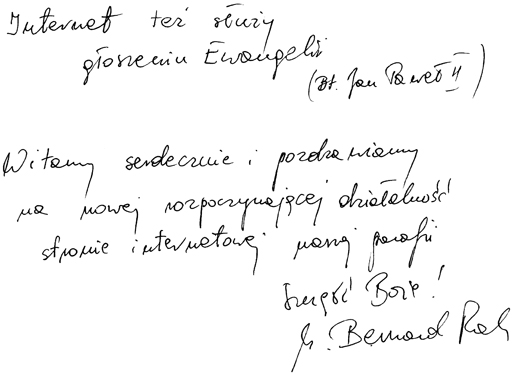 Internet też służy
głoszeniu Ewangelii
(Bł. Jan Paweł II)
Witamy serdecznie i pozdrawiamy
na nowej rozpoczynającej działalność
stronie internetowej naszej parafii
Szczęść Boże!
Bernard